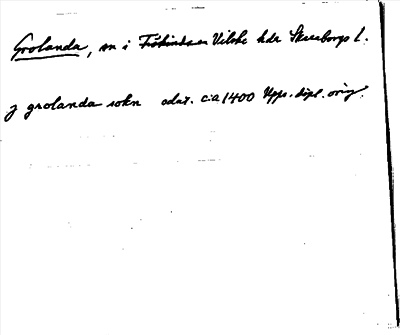 Grolanda, sn i Vilske hdr Skaraborgs l.
j grolanda sokn odat. c:a 1400 Upps. dipl. orig.